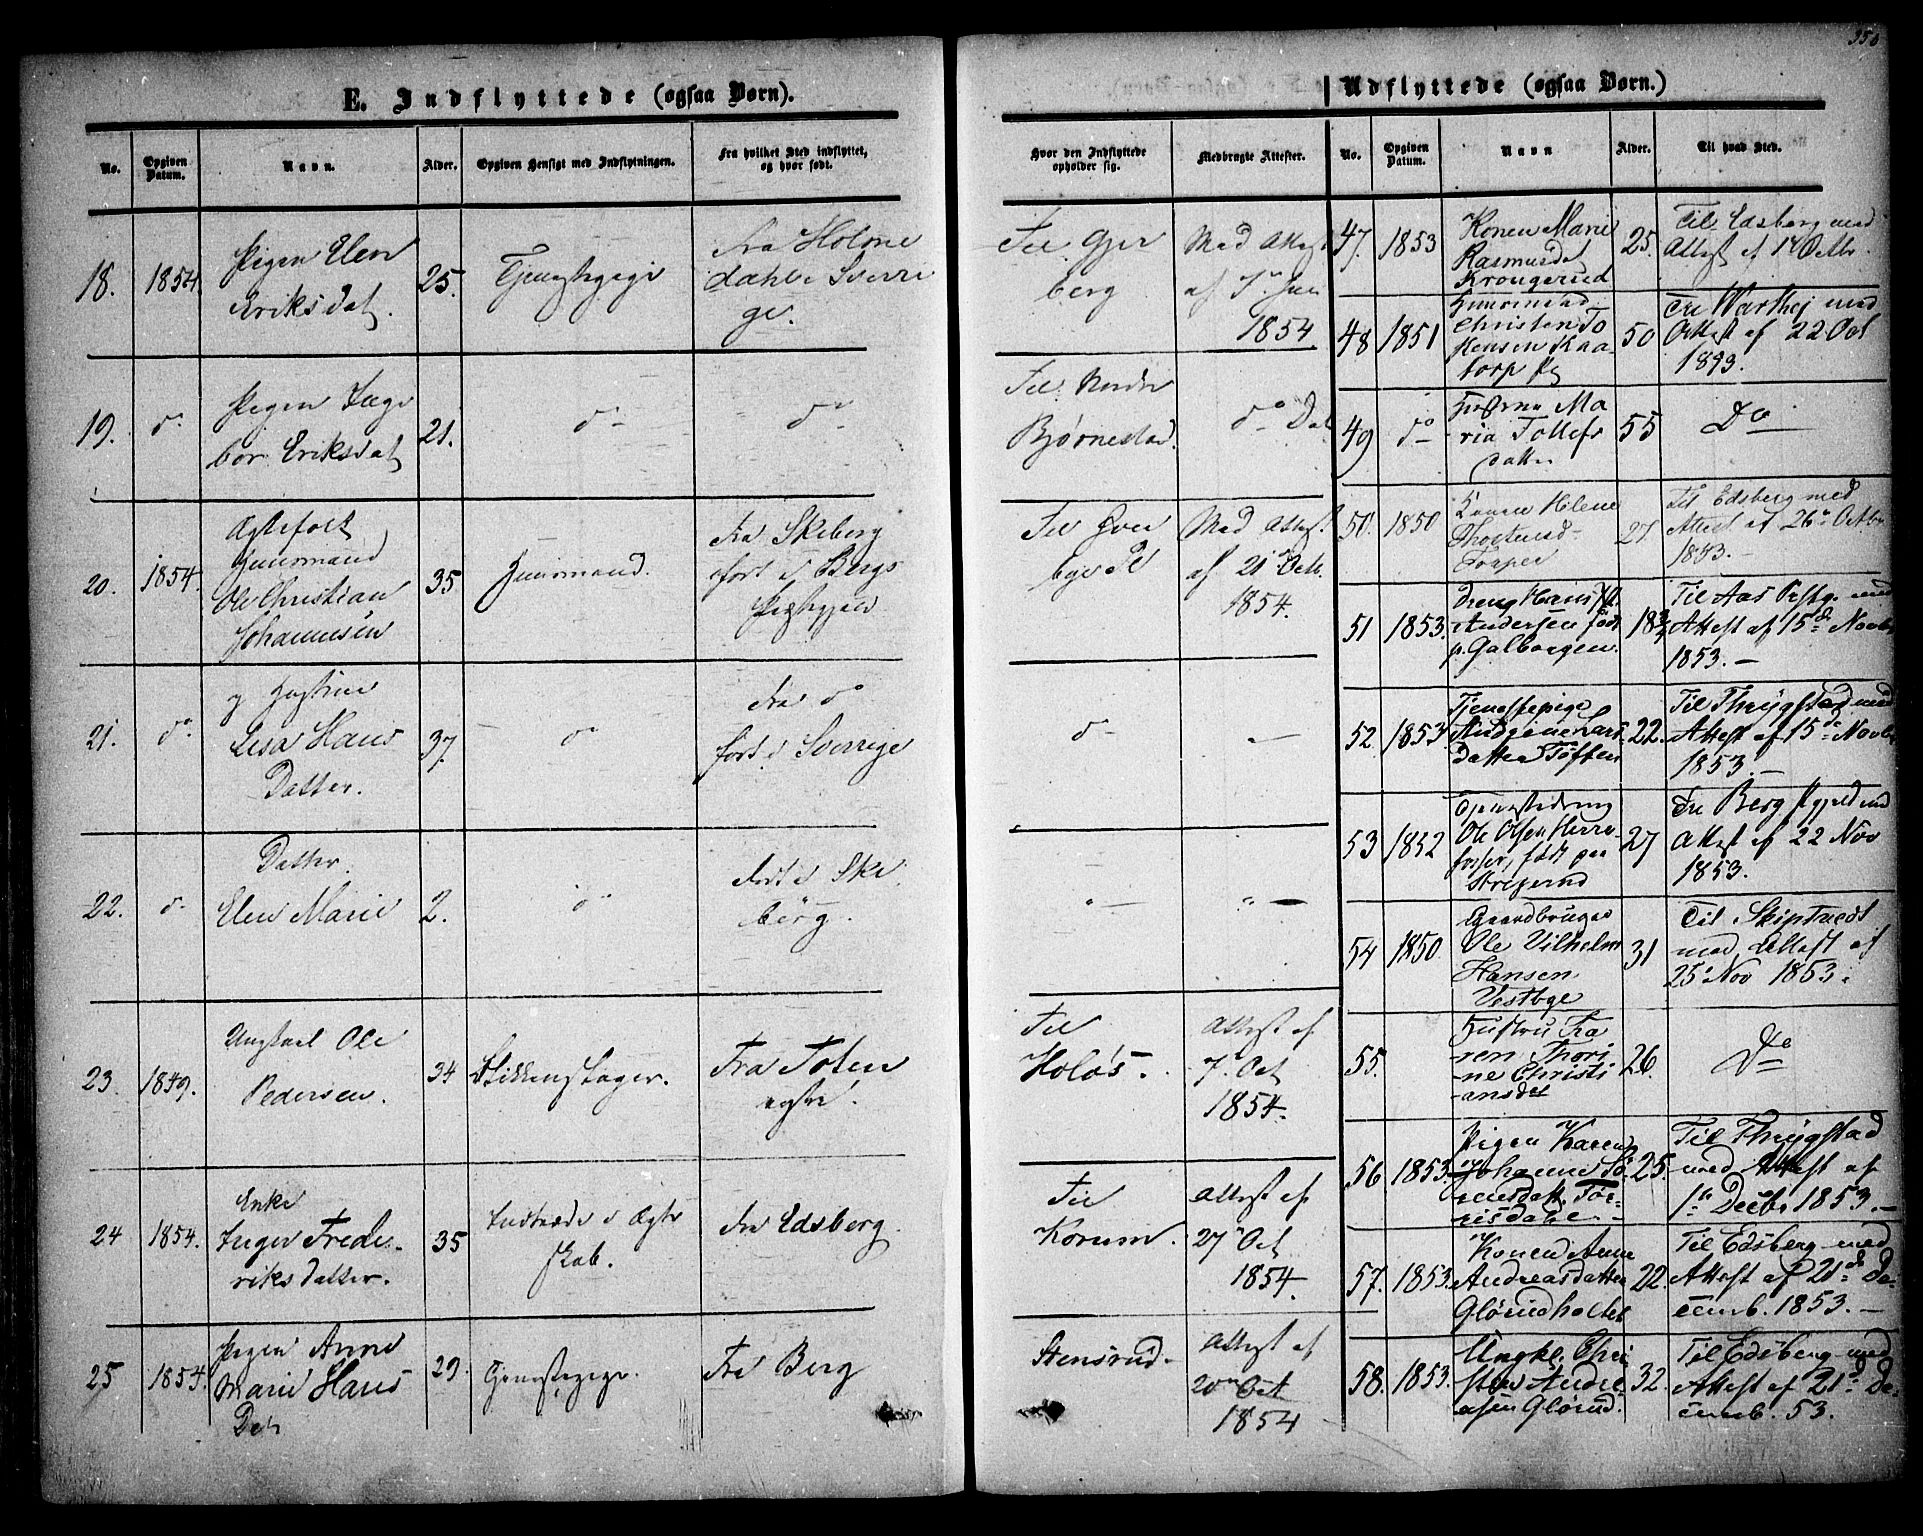 350
E. Indflyttede (ogsaa Børn).
No.
Opgiven Datum.
Navn.
Alder.
Opgiven Hensigt med Indflytningen.
Fra hvilket Sted indflyttet, og hvor født.
Hvor den Indflyttede opholder sig.
Medbragte Attester.
18.
1854.
Pigen Elen
Eriksdat.
25.
Tjenestepige
fra Holme
dahl i Sverri
ge.
Til Gjer
berg
Med Attest
af
1854
19.
do
Pigen Inge
bor Eriksdat
21.
do
do
Til Nordre
Bjørnestad.
do Dat
20.
1854.
Ægtefolk
Huusmand
Ole Christian
Johannesen
35
Huusmand.
Fra Skeberg
født i Bergs
Præstegjeld
Til
Med Attest
af 21 Octb.
1854.
21.
do
og Hustrue
Lisa Hans
Datter.
37.
do
Fra do
født i Sverrige
do
22.
do
Datter
Elen Marie
2.
do
født i Ske
berg.
23.
1849.
Ungkarl Ole
Pedersen.
34
Fra Toten
Til
Holøs.
Attest af
7 Oct
1854.
24
1854.
Enke
Inger Frede
riks Datter.
35
Indtræde i Ægte
skab.
fra Edsberg.
Til
Korum.
Attest af
27 Oct
1854.
25
1854.
Pigen Anne
Marie Hans
Dat
29.
Tjenestepige.
Fra Berg
Stensrud.
Attest af
20 Oct
1854
Udflyttede (ogsaa Børn.)
No.
Opgiven Datum.
Navn
Alder.
Til hvad Sted.
47.
1853
Konen Marie
Rasmusdat
Krongerud
25.
Til Edsberg med
Attest af 14 Octbr.
48
1851
Huusmand
Christen To
Kaa-
torp
50
Til Warthej med
Attest af 22 Oct
1893.
49
do
Ma
ria Tollefs
datter
55
Do
50.
1850
Konen Helene
Thostensd-
27
Til Edsberg med
Attest af 26 Octbr
1853.-
51
1853.
Dreng Hans
Andersen født
p. Galborgen.
18 3/4
Til Aas Præstg. med
Attest af 15d Novbr
1853.-
52.
1853
Tjenestepige
Andrine Lars
Datter Toften
22.
Til Thrygstad med
Attest af 15de Novbr
1853.-
53
1852
Tjenestedreng
Ole Olsen Herre-
fosser, født paa
27
Til Berg Pgjeld med
Attest af 22 Nov
1853.
54
1850
Gaardbruger
Ole Vilhelm
Hansen
Vestbye
31
Til Skiptvedt
med Attest af
25 Nov 1853.
55.
Hustru Ka
ren Thori
ne Christi
ansdat
26.
Do
56
1853.
Pigen Karen
Johanne Tø
rrisdatt Tør-
risdahl
25.
Til Thrygstad
med Attest af
1te Decbr 1853.-
57.
1853.
Konen Anne
Andreasdatter
Glørudholtet
22.
Til Edsberg med
Attest af 21de De-
cemb. 1853.-
58.
1853.
Ungkl. Chri
stian Andre
asen Glørud.
32.
Til Edsberg med
Attest af 21d De
cemb. 53.